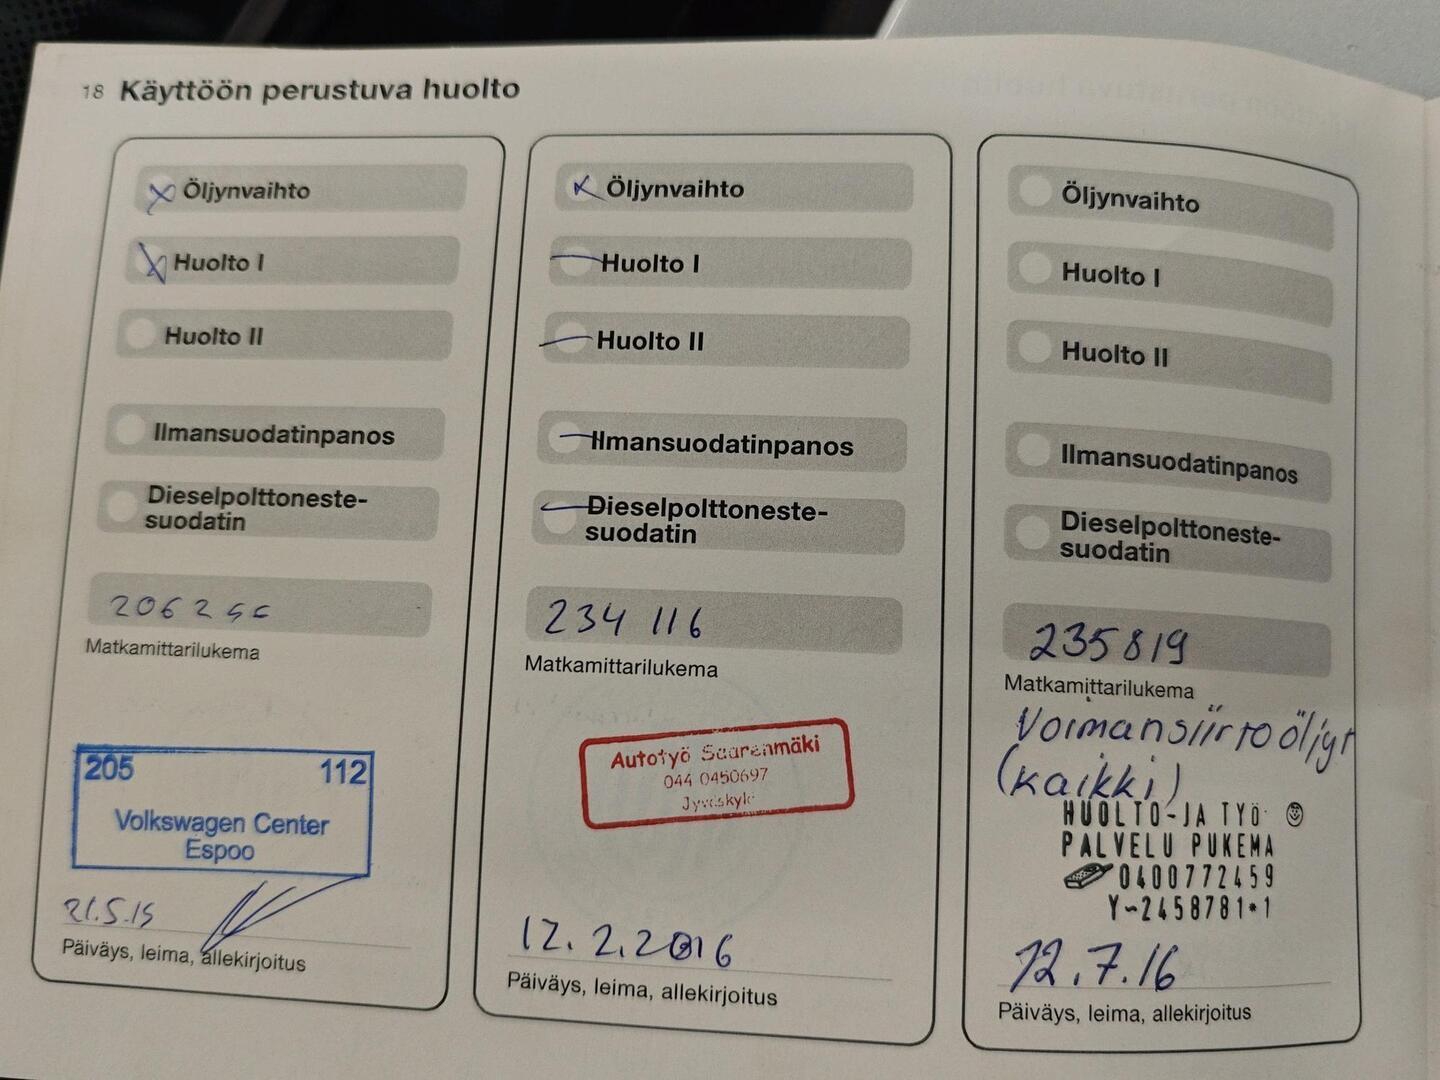 18 Käyttöön perustuva huolto
Öljynvaihto
Huolto I
Huolto II
Ilmansuodatinpanos
Dieselpolttoneste-
suodatin
Matkamittarilukema
205 112
Volkswagen Center
Espoo
21.5.15
Päiväys, leima, allekirjoitus
Öljynvaihto
Huolto I
Huolto II
Ilmansuodatinpanos
Dieselpolttoneste-
suodatin
234 116
Matkamittarilukema
Autotyö Saarenmäki
044 0450697
Jyväskylä
12.2.2016
Päiväys, leima, allekirjoitus
Öljynvaihto
Huolto I
Huolto II
Ilmansuodatinpanos
Dieselpolttoneste-
suodatin
235819
Matkamittarilukema
Voimansiirtoöljyt
(kaikki)
HUOLTO-JA TYÖ-
PALVELU PUKEMA
0400772459
Y-2458781-1
12.7.16
Päiväys, leima, allekirjoitus